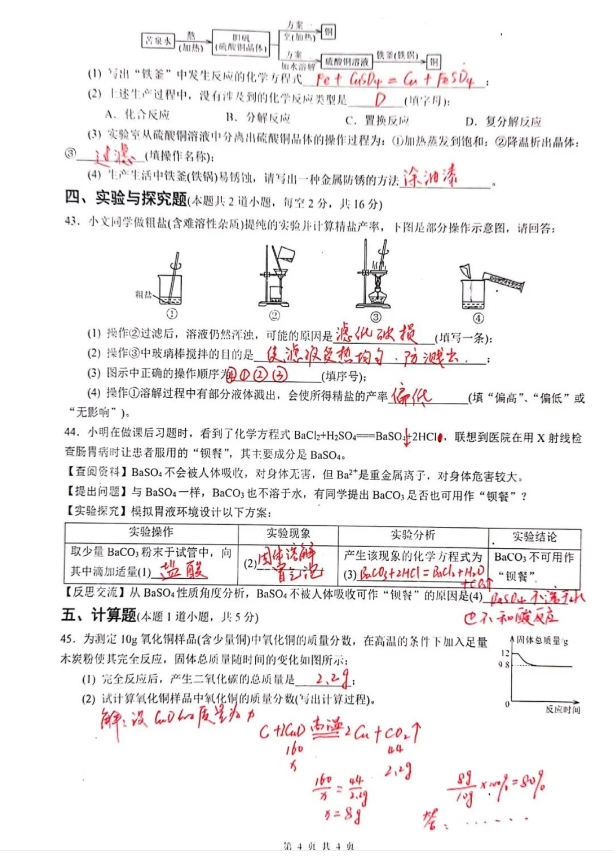 苦泉水 热(加热) 胆矾(硫酸铜晶体) 方案一 空(加热) 铜
方案 加水溶解 硫酸铜溶液 铁釜(铁锅) 铜
(1) 写出“铁釜”中发生反应的化学方程式 Fe + CuSO4 = Cu + FeSO4 ;
(2) 上述生产过程中,没有涉及到的化学反应类型是 D (填字母);
A. 化合反应 B. 分解反应 C. 置换反应 D. 复分解反应
(3) 实验室从硫酸铜溶液中分离出硫酸铜晶体的操作过程为:①加热蒸发到饱和;②降温析出晶体;
③ 过滤 (填操作名称);
(4) 生产生活中铁釜(铁锅)易锈蚀,请写出一种金属防锈的方法 涂油漆 。
四、实验与探究题(本题共2道小题,每空2分,共16分)
43. 小文同学做粗盐(含难溶性杂质)提纯的实验并计算精盐产率,下图是部分操作示意图,请回答:
粗盐
① ② ③ ④
(1) 操作②过滤后,溶液仍然浑浊,可能的原因是 滤纸破损 (填写一条);
(2) 操作③中玻璃棒搅拌的目的是 使滤液受热均匀.防溅出. ;
(3) 图示中正确的操作顺序为 ④①②③ (填序号);
(4) 操作①溶解过程中有部分液体溅出,会使所得精盐的产率 偏低 (填“偏高”、“偏低”或
“无影响”)。
44. 小明在做课后习题时,看到了化学方程式 BaCl2+H2SO4═══BaSO4↓+2HCl,联想到医院在用X射线检
查肠胃病时让患者服用的“钡餐”,其主要成分是 BaSO4。
【查阅资料】BaSO4 不会被人体吸收,对身体无害,但 Ba2+是重金属离子,对身体危害较大。
【提出问题】与 BaSO4 一样,BaCO3 也不溶于水,有同学提出 BaCO3 是否也可用作“钡餐”?
【实验探究】模拟胃液环境设计以下方案:
实验操作 实验现象 实验分析 实验结论
取少量 BaCO3 粉末于试管中,向 (2) 固体溶解 产生该现象的化学方程式为 BaCO3 不可用作
其中滴加适量(1) 盐酸 冒气泡 (3) BaCO3+2HCl=BaCl2+H2O+CO2↑ “钡餐”.
【反思交流】从 BaSO4 性质角度分析,BaSO4 不被人体吸收可作“钡餐”的原因是(4) BaSO4 不溶于水
也不和酸反应
五、计算题(本题1道小题,共5分)
45. 为测定 10g 氧化铜样品(含少量铜)中氧化铜的质量分数,在高温的条件下加入足量
木炭粉使其完全反应,固体总质量随时间的变化如图所示:
固体总质量/g
12
9.8
0
反应时间
(1) 完全反应后,产生二氧化碳的总质量是 2.2g ;
(2) 试计算氧化铜样品中氧化铜的质量分数(写出计算过程)。
解:设 CuO 的质量为x
C+2CuO 高温 2Cu+CO2↑
160 44
x 2.2g
160/x = 44/2.2g
x=8g
8g/10g ×100%=80%
答: ......
第 4 页 共 4 页